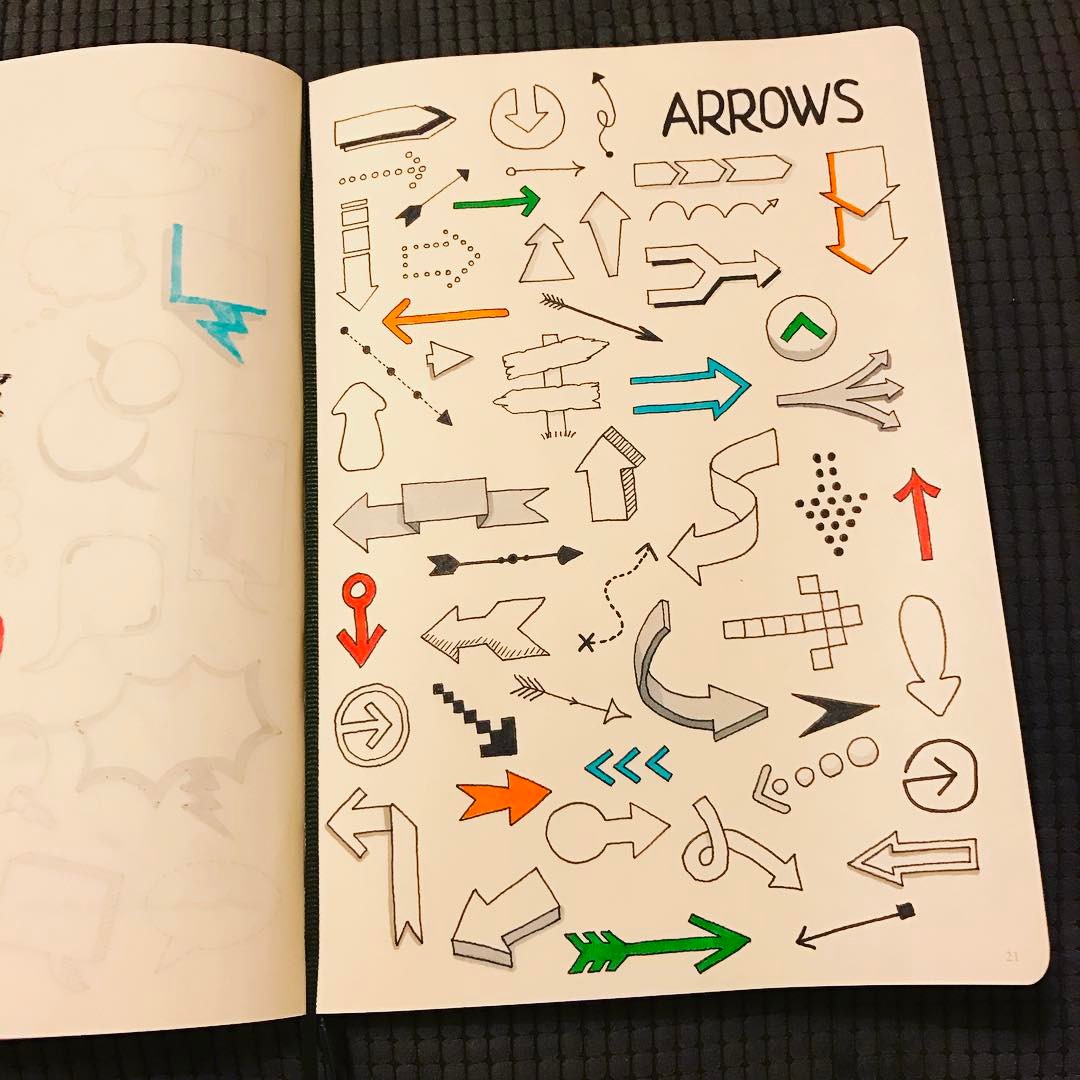 ARROWS
21